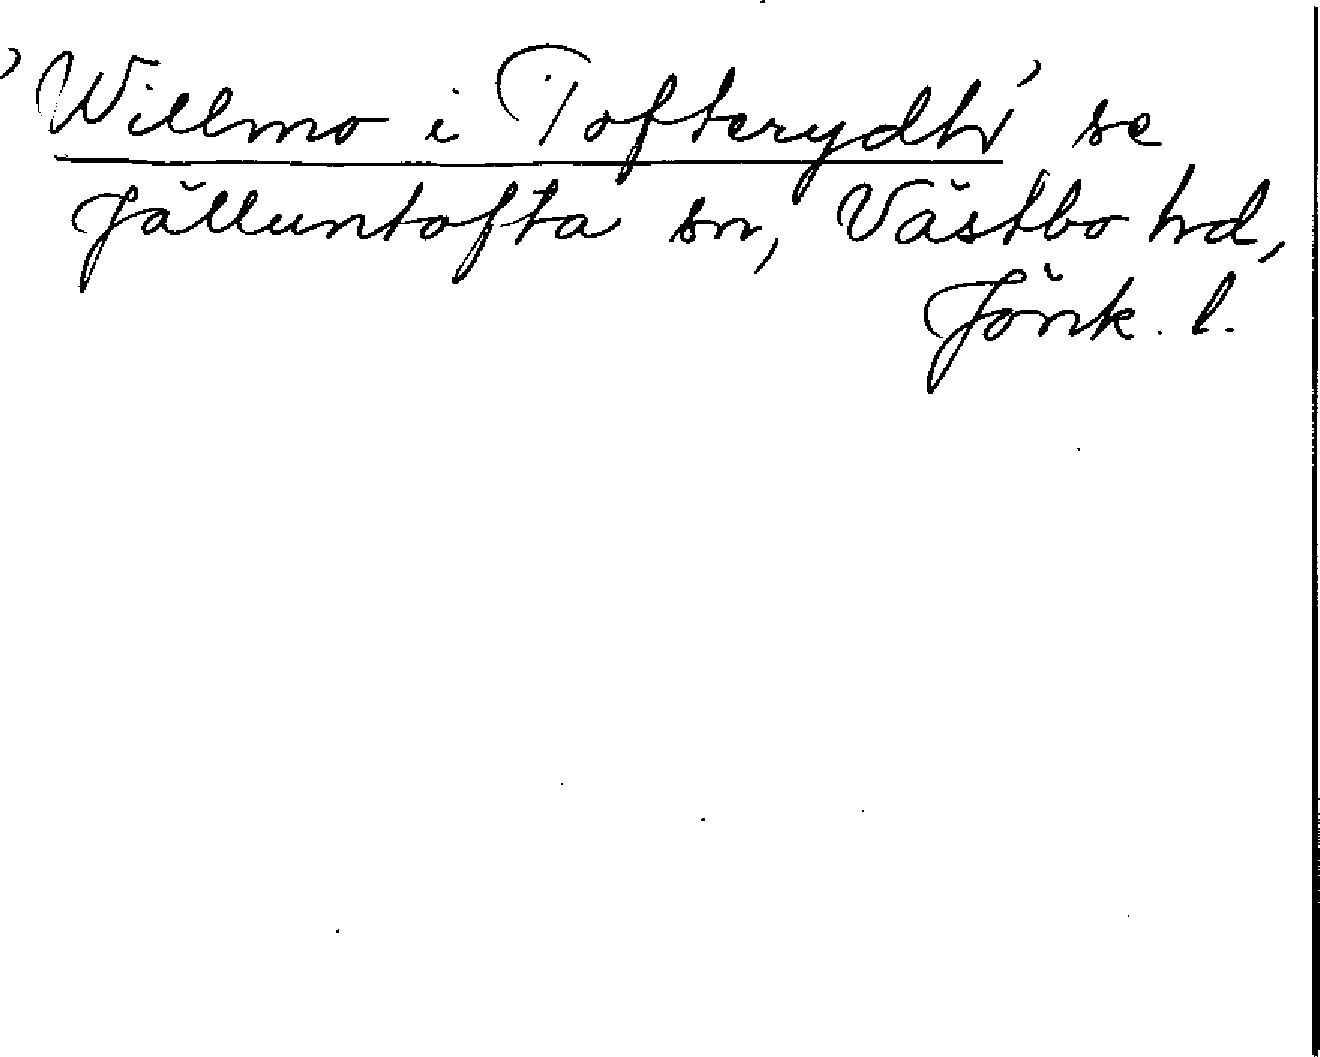 ’Willmo i Tofterydh’ se
Jälluntofta sn, Västbo hd,
Jönk. l.